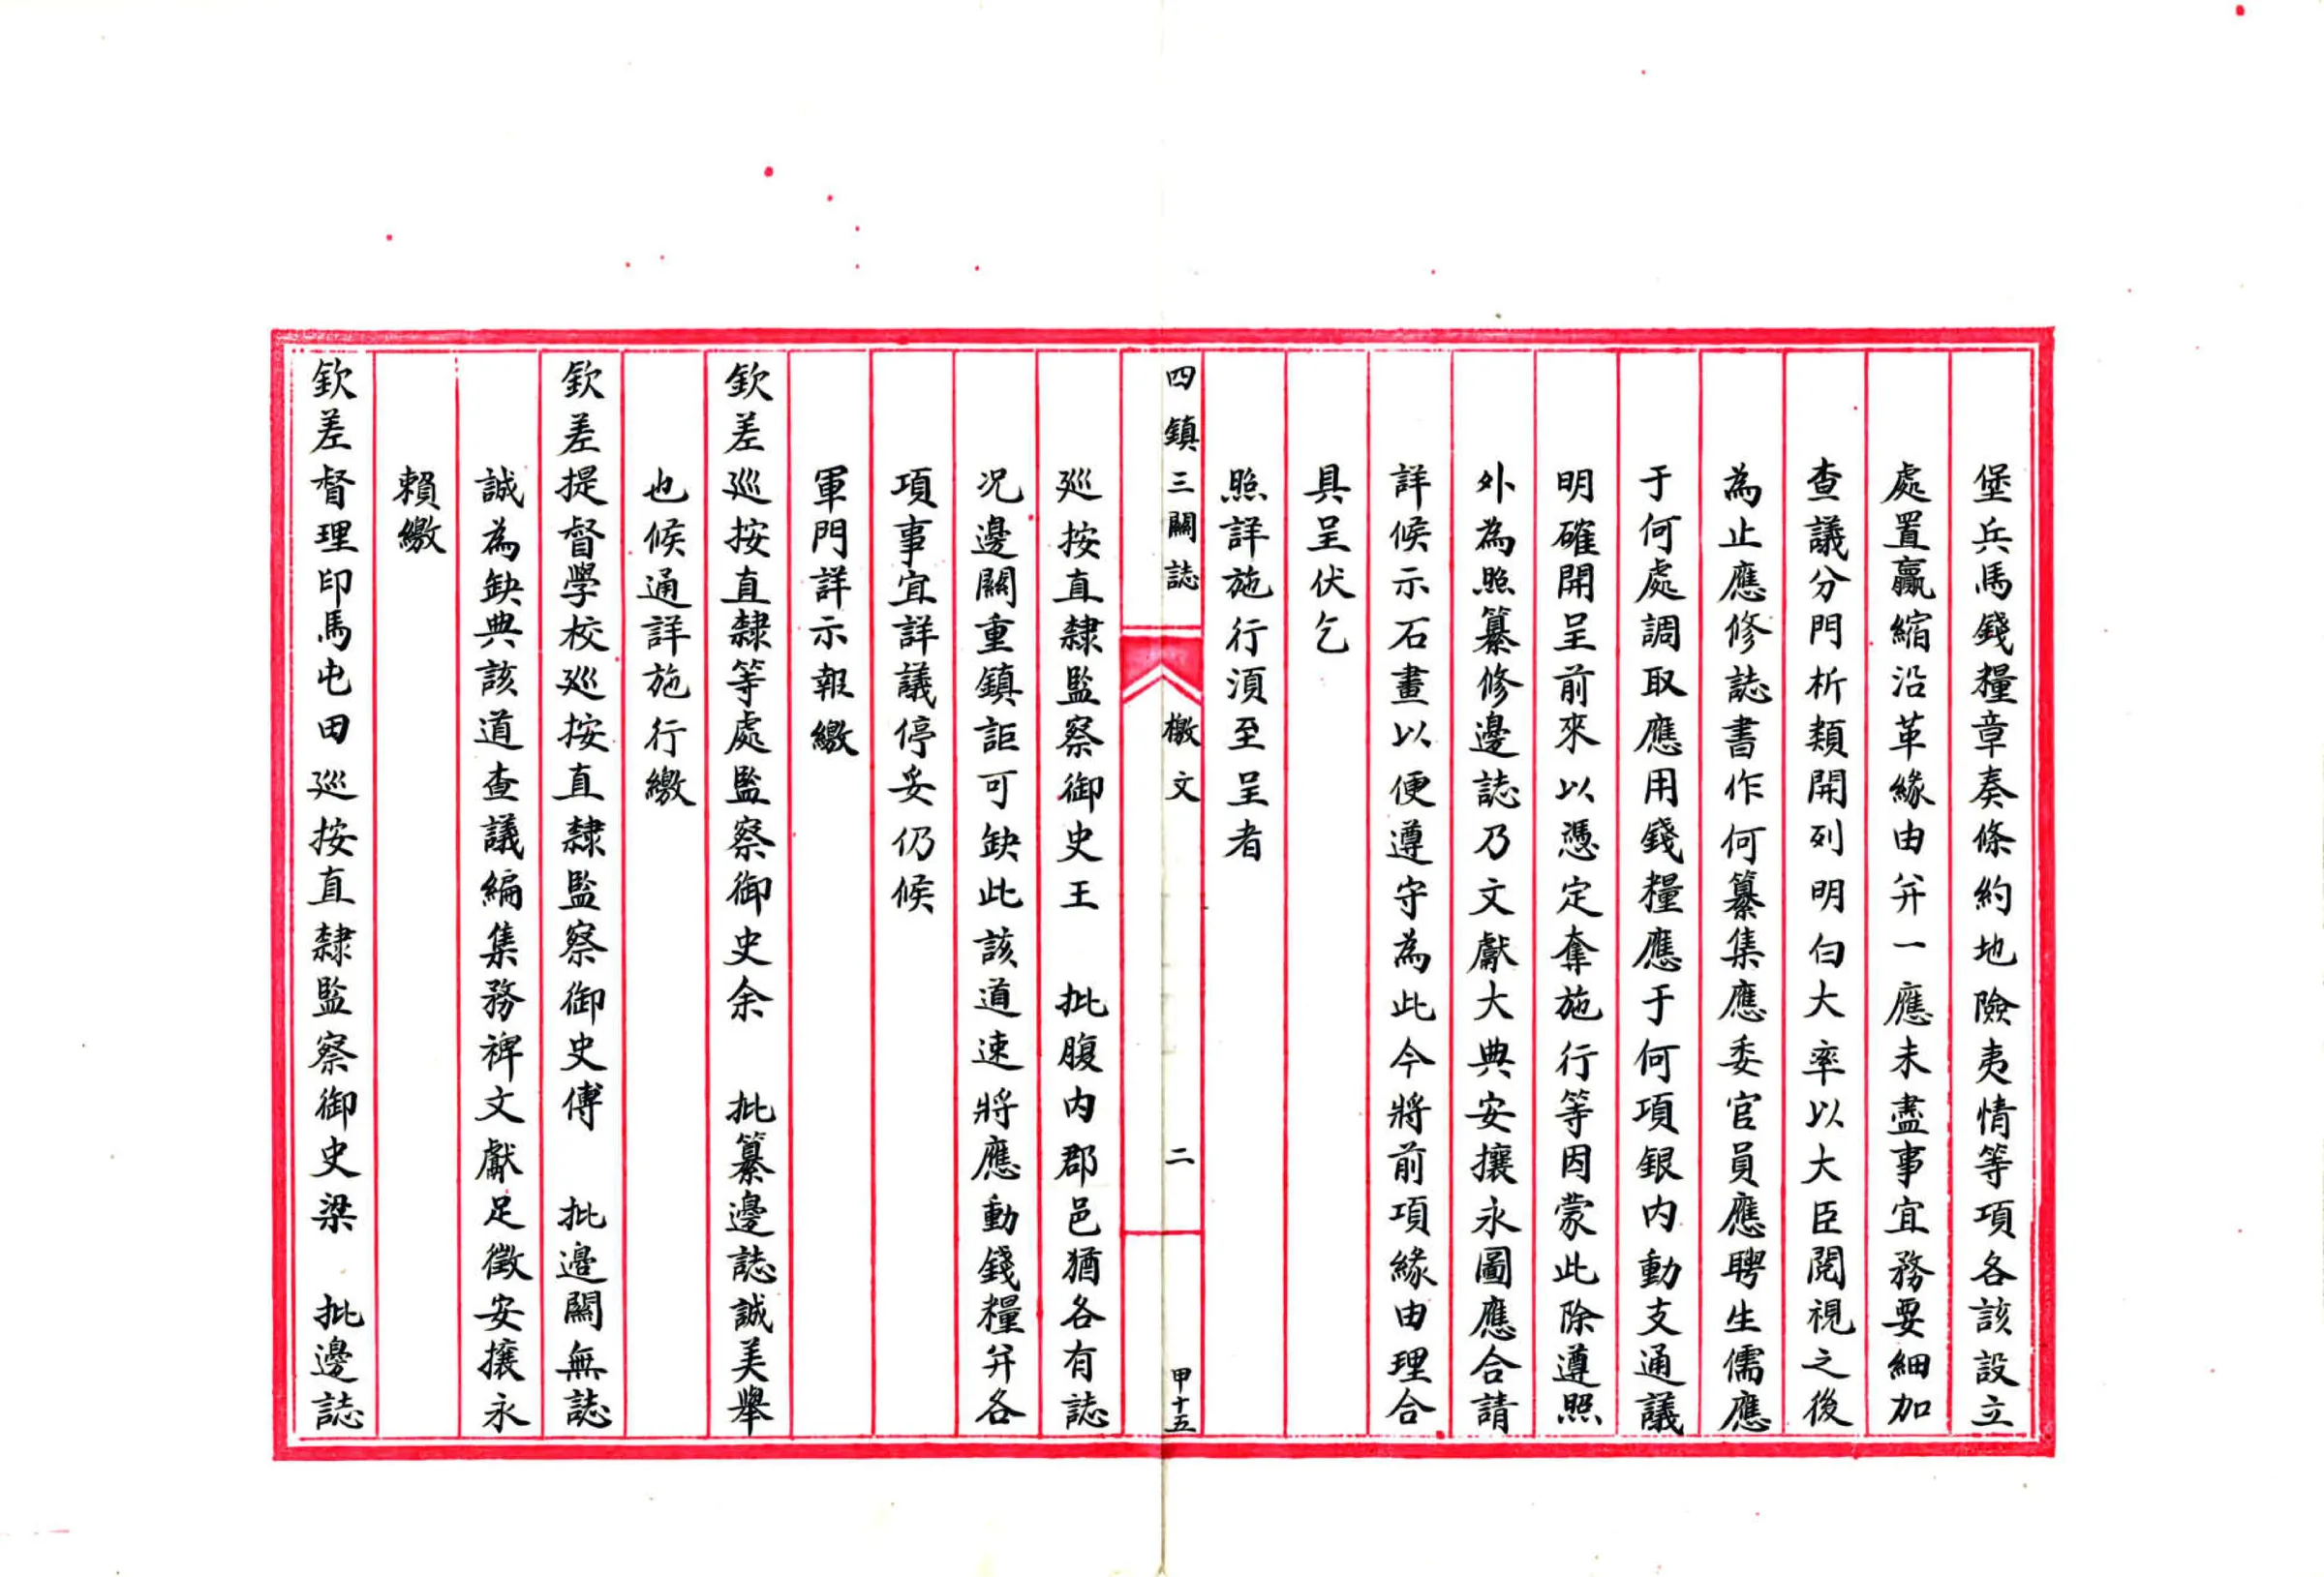 堡兵馬錢糧章奏條約地險夷情等項各該設立
處置贏縮沿革緣由并一應未盡事宜務要細加
查議分門析類開列明白大率以大臣閱視之後
為止應修誌書作何纂集應委官員應聘生儒應
于何處調取應用錢糧應于何項銀內動支通議
明確開呈前來以憑定奪施行等因蒙此除遵照
外為照纂修邊誌乃文獻大典安攘永圖應合請
詳候示石畫以便遵守為此今將前項緣由理合
具呈伏乞
照詳施行須至呈者
四鎮三關誌 檄文 二 甲十五
巡按直隸監察御史王 批腹内郡邑猶各有誌
况邊關重鎮詎可缺此該道速將應動錢糧并各
項事宜詳議停妥仍候
軍門詳示報繳
欽差巡按直隸等處監察御史余 批纂邊誌誠美舉
也候通詳施行繳
欽差提督學校巡按直隸監察御史傅 批邊關無誌
誠為缺典該道查議編集務裨文獻足徵安攘永
賴繳
欽差督理印馬屯田巡按直隸監察御史梁 批邊誌